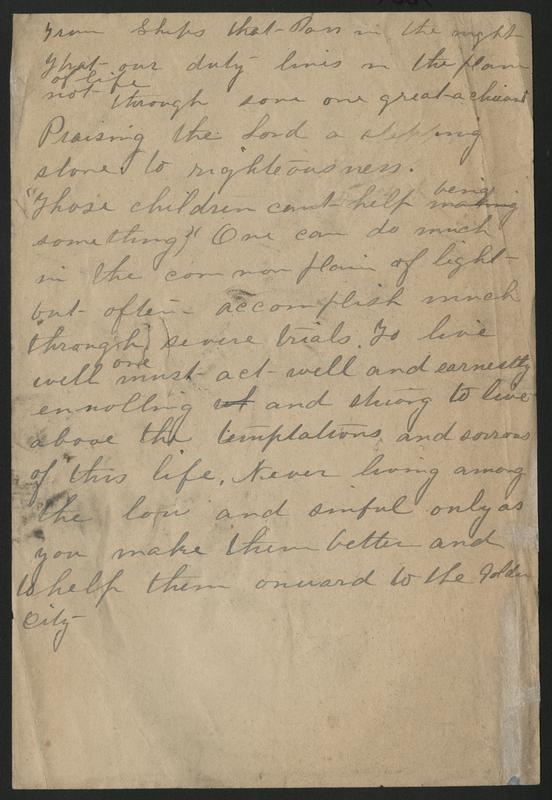 From Ships that Pass in the night
That our duty lines in the plain
of life
not through some one great achieve
Praising the Lord a stepping
stone to righteousness.
"Those children cant help being making
something" One can do much
in the common plain of light
but often accomplish much
through severe trials. To live
well one must act well and earnestly
ennolling it and strong to live
above the temptations and sorrows
of this life. Never living among
the low and sinful only as
you make them better and
to help them onward to the Golden
City